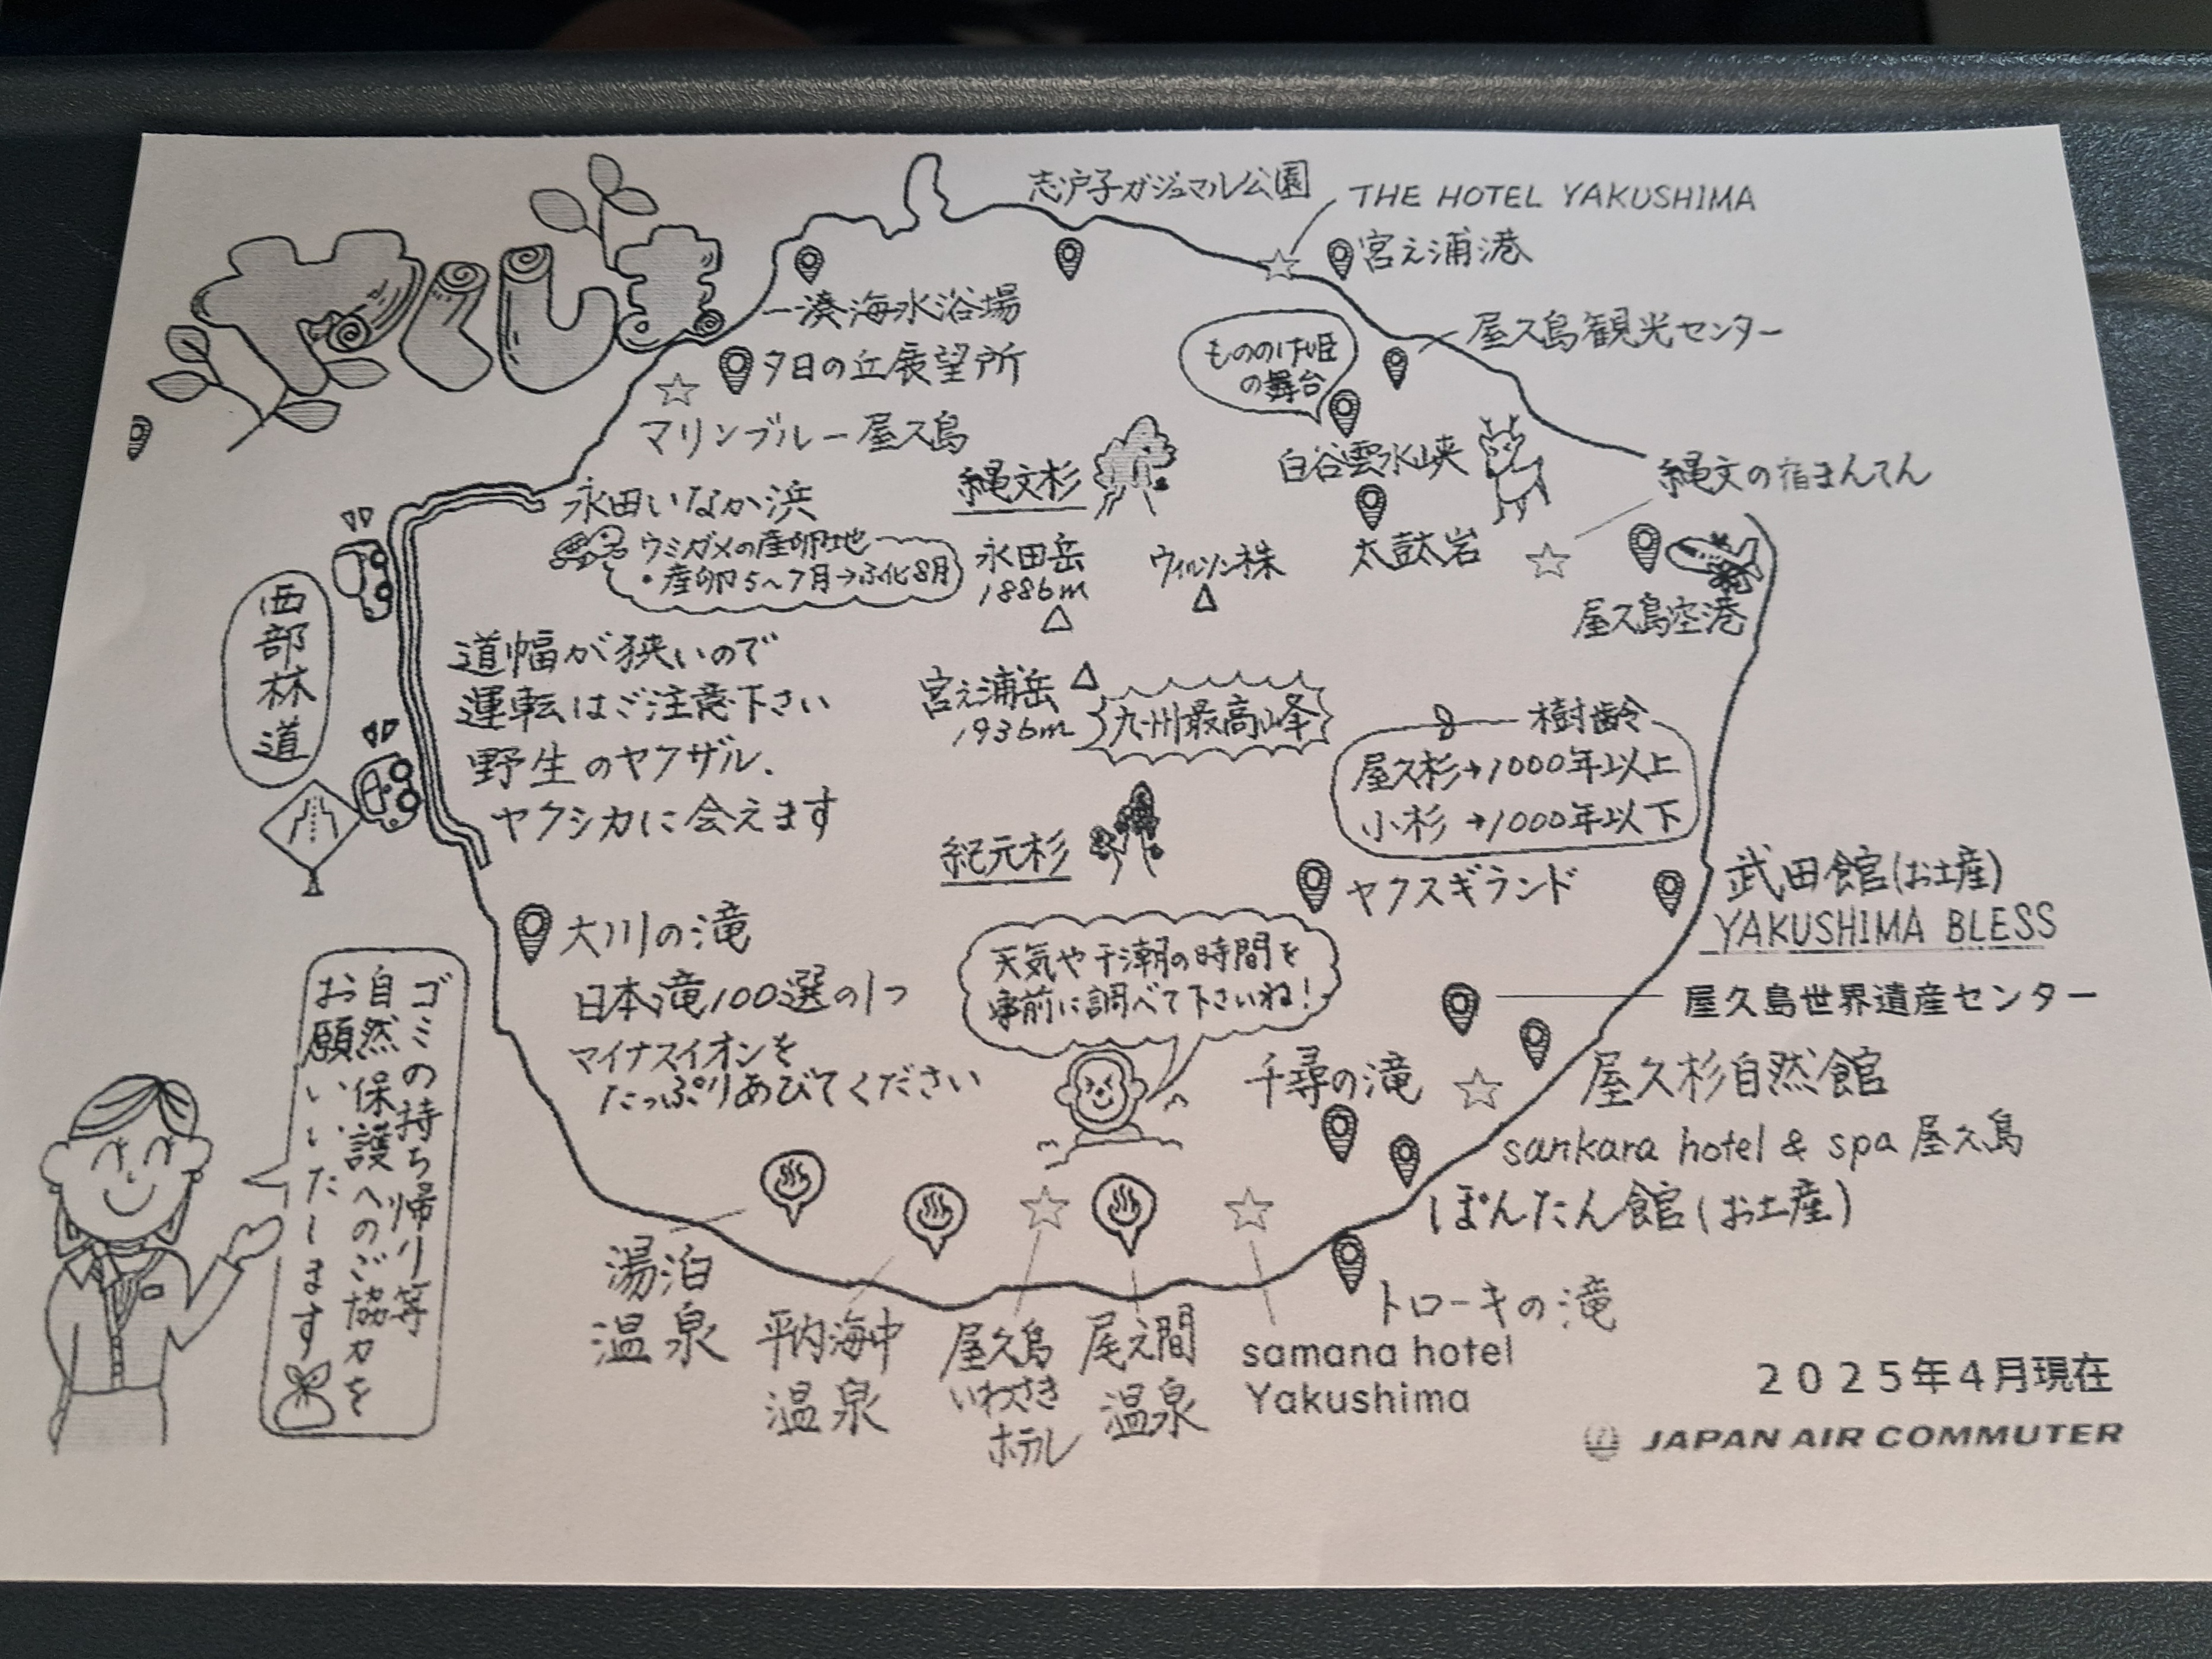 やくしま
志戸子ガジュマル公園
THE HOTEL YAKUSHIMA
宮之浦港
一湊海水浴場
屋久島観光センター
夕日の丘展望所
もののけ姫
の舞台
マリンブルー屋久島
白谷雲水峡
縄文杉
縄文の宿まんてん
永田いなか浜
ウミガメの産卵地
・産卵5~7月→ふ化8月
永田岳
1886m
ウィルソン株
太鼓岩
屋久島空港
西部林道
道幅が狭いので
運転はご注意下さい
野生のヤクザル、
ヤクシカに会えます
宮之浦岳
1936m
九州最高峰
樹齢
屋久杉→1000年以上
小杉→1000年以下
紀元杉
ヤクスギランド
武田館(お土産)
YAKUSHIMA BLESS
大川の滝
日本滝100選の1つ
マイナスイオンを
たっぷりあびてください
天気や干潮の時間を
事前に調べて下さいね!
屋久島世界遺産センター
千尋の滝
屋久杉自然館
sankara hotel & spa 屋久島
ぽんたん館(お土産)
トローキの滝
ゴミの持ち帰り等
自然保護へのご協力を
お願いいたします
湯泊
温泉
平内海中
温泉
屋久島
いわさき
ホテル
尾之間
温泉
samana hotel
Yakushima
2025年4月現在
JAPAN AIR COMMUTER